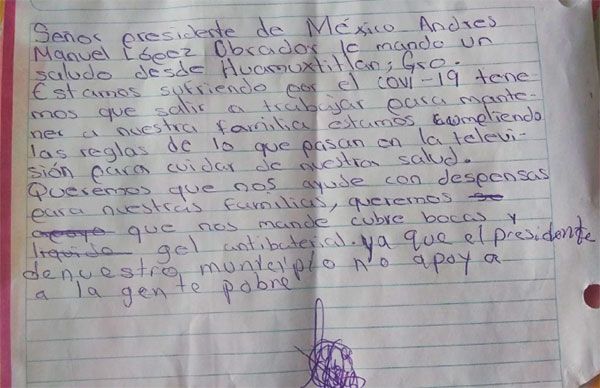 Señor presidente de México Andres
Manuel López Obrador le mando un
saludo desde Huamuxtitlan, Gro.
Estamos sufriendo por el COVI-19 tene-
mos que salir a trabajar para mante-
ner a nuestra familia estamos cumpliendo
las reglas de lo que pasan en la televi-
sión para cuidar de nuestra salud.
Queremos que nos ayude con despensas
para nuestras familias, queremos
que nos mande cubre bocas y
liquido gel antibaterial. ya que el presidente
denuestro municipio no apoya
a la gente pobre